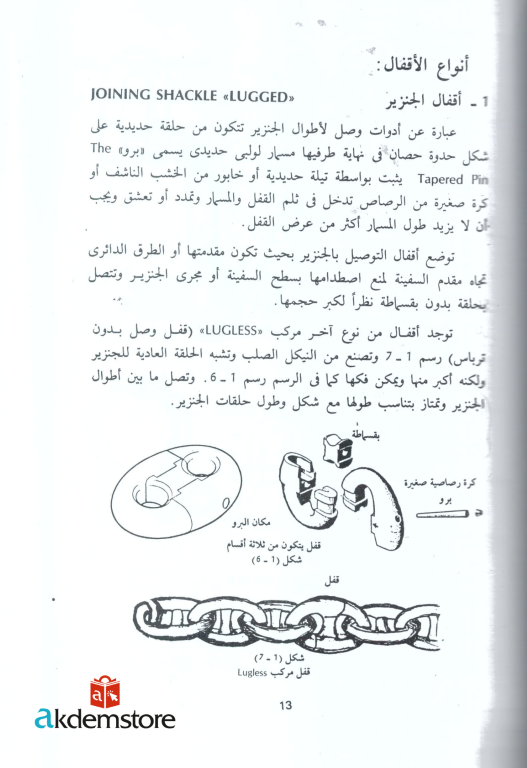 أنواع الأقفال:
1 ـ أقفال الجنزير JOINING SHACKLE «LUGGED»
عبارة عن أدوات وصل لأطوال الجنزير تتكون من حلقة حديدية على
شكل حدوة حصان فى نهاية طرفيها مسمار لولبى حديدى يسمى «برو» The
Tapered Pin يثبت بواسطة تيلة حديدية أو خابور من الخشب الناشف أو
كرة صغيرة من الرصاص تدخل فى ثلم القفل والمسمار وتمدد أو تعشق ويجب
أن لا يزيد طول المسمار أكثر من عرض القفل.
توضع أقفال التوصيل بالجنزير بحيث تكون مقدمتها أو الطرق الدائرى
تجاه مقدم السفينة لمنع اصطدامها بسطح السفينة أو مجرى الجنزير وتتصل
بحلقة بدون بقسماطة نظراً لكبر حجمها.
توجد أقفال من نوع آخر مركب «LUGLESS» (قفل وصل بدون
ترباس) رسم 1 ـ 7 وتصنع من النيكل الصلب وتشبه الحلقة العادية للجنزير
ولكنه أكبر منها ويمكن فكها كما فى الرسم رسم 1 ـ 6. وتصل ما بين أطوال
الجنزير وتمتاز بتناسب طولها مع شكل وطول حلقات الجنزير.
بقسماطة
كرة رصاصية صغيرة
برو
مكان البرو
قفل يتكون من ثلاثة أقسام
شكل (1 ـ 6)
قفل
شكل (1 ـ 7)
قفل مركب Lugless
13
akdemstore